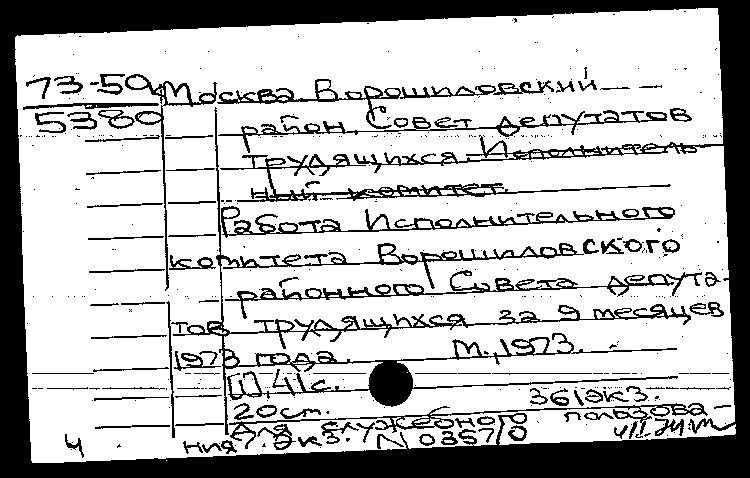 73-50
5380
Москва Ворошиловский
район. Совет депутатов
трудящихся. Исполнитель-
ный комитет.
Работа Исполнительного
комитета Ворошиловского
районного Совета депута-
тов трудящихся за 9 месяцев
1973 года. М., 1973.
[1], 41 с.
20 см. 361экз.
Для служебного пользова-
ния. Экз. N 0357/0
4